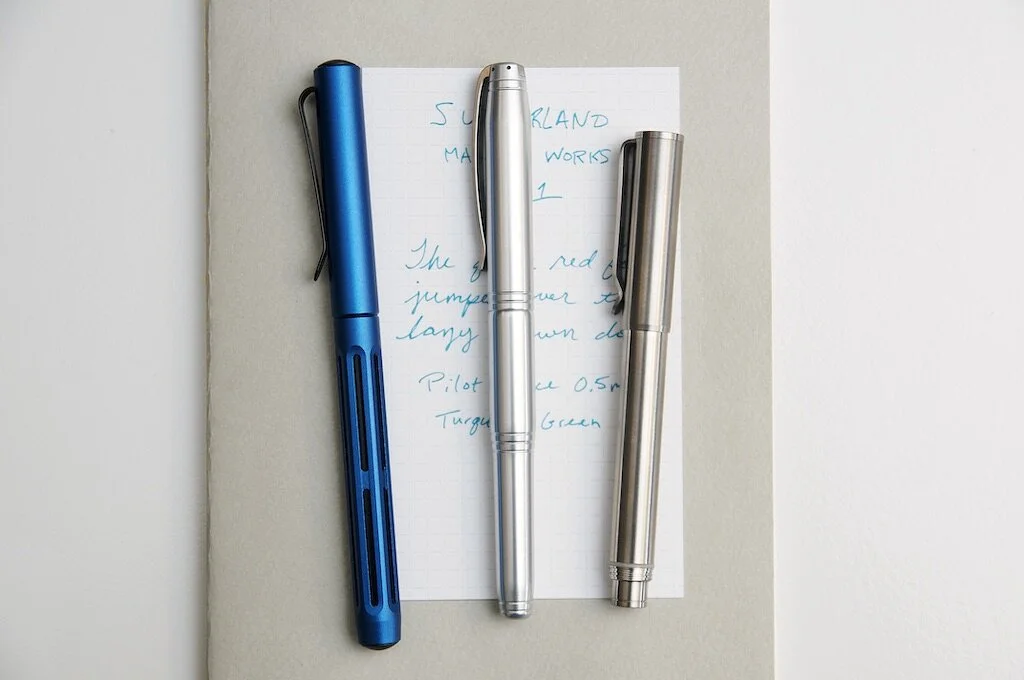 SU RLAND
MA WORKS
1
The q red
jumpe ver t
lazy wn do
Pilot ce 0.5m
Turqu Green